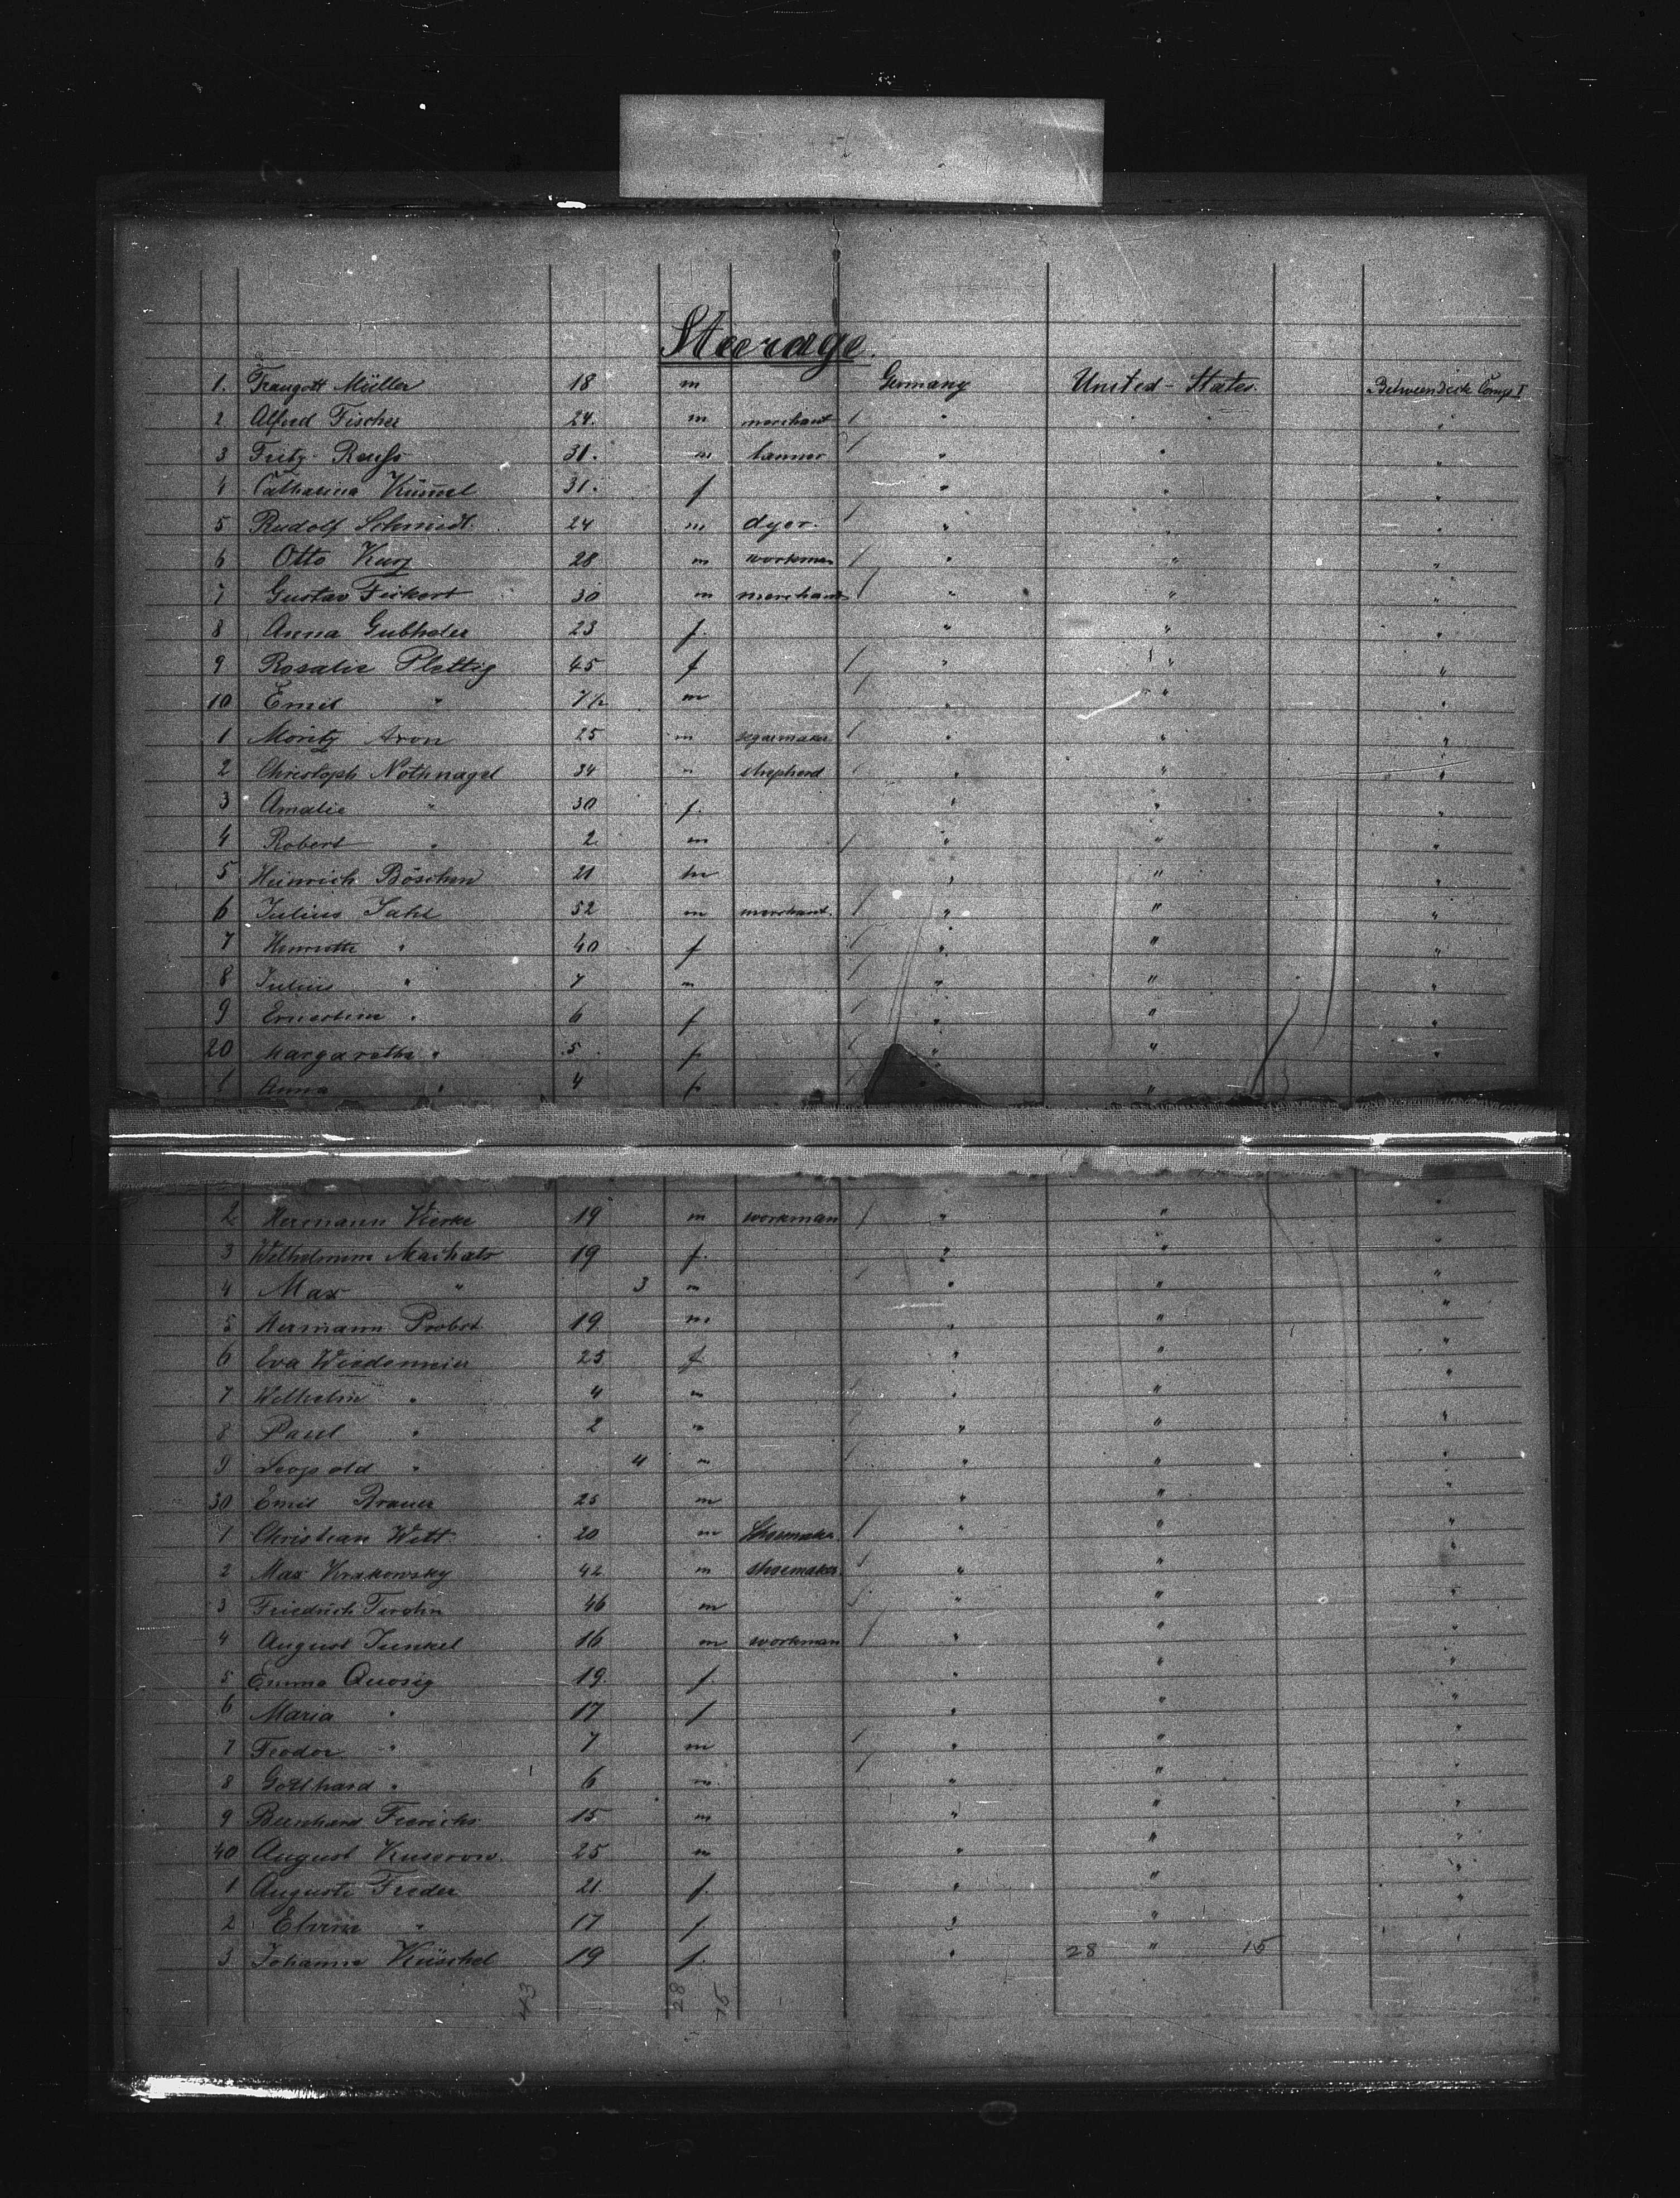 Steerage.
1. Traugott Müller 18 m Germany United-States. Between Deck Comp I
2 Alfred Fischer 24. m merchant / " " " "
3 Fritz Reuss 31. m tanner / " " "
4 Catharina Kümmel 31. f " " "
5 Rudolf Schmidt. 24 m dyer. / " " "
6 Otto Kurz 28 m workman / " " "
7 Gustav Fickert 30 m merchant / " " "
8 Anna 23 f. " " "
9 Rosalie Plettig 45 f / " " "
10 Emil " 7½ m / " " "
1 Moritz Aron 25 m segarmaker / " " "
2 Christoph Nothnagel 34 " shepherd / " " "
3 Amalie " 30 f. " " "
4 Robert " 2. m / " " "
5 Heinrich Böschen 21 m " " "
6 Julius Sahl 52 m merchant. / " " "
7 Henriette " 40 f / " " "
8 Julius " 7 m / " " "
9 Ernestine " 6 f / " " "
20 Margarethe " 5 f / " " "
1 Anna " 4 f / " "
2 Hermann Vierke 19 m workman / " " "
3 19 f. " " "
4 Max " 3 m / " " "
5 Hermann Probst 19 m " " "
6 Eva Wiedenmeier 25 f. " " "
7 Wilhelm " 4 m / " " "
8 Paul " 2 m / " " "
9 Leopold " 4 m / " " "
30 Emil Brauer 25 m " " "
1 Christian Witt. 20 m Shoemaker. / " " "
2 Max Krakowsky 42 m shoemaker. / " " "
3 Friedrich 46 m / " " "
4 August Junkel 16 m workman / " " "
5 Emma Quosig 19. f. " " "
6 Maria " 17 f " " "
7 Feodor " 7 m / " " "
8 Gotthard " 6 m / " " "
9 Bernhard 15 m " " "
40 August Kuserow. 25 m " " "
1 Auguste Freder 21. f. " " "
2 " 17 f " " "
3 Johanne Küschel 19 f. " 28 " 15 "
43 28 15